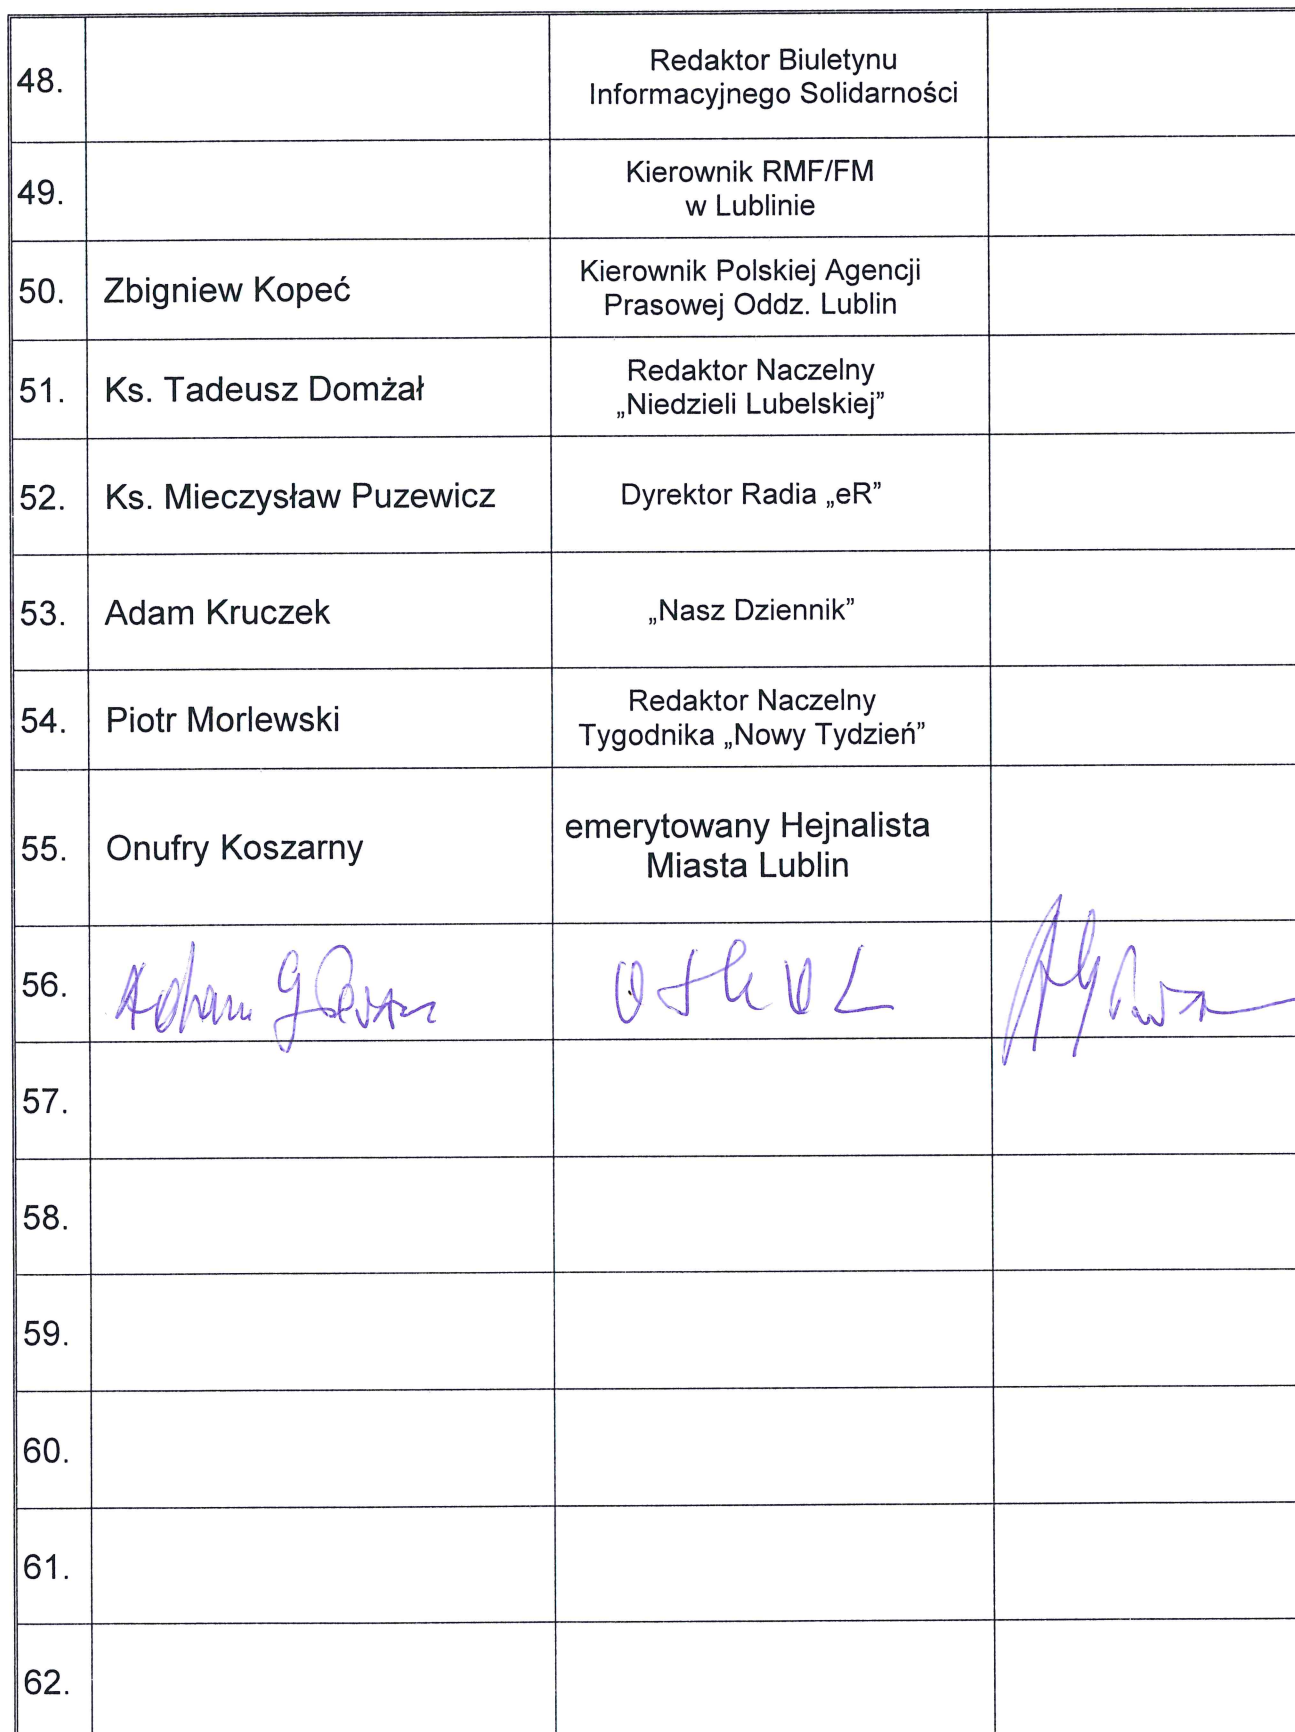 48.
Redaktor Biuletynu
Informacyjnego Solidarności
49.
Kierownik RMF/FM
w Lublinie
50.
Zbigniew Kopeć
Kierownik Polskiej Agencji
Prasowej Oddz. Lublin
51.
Ks. Tadeusz Domżał
Redaktor Naczelny
„Niedzieli Lubelskiej”
52.
Ks. Mieczysław Puzewicz
Dyrektor Radia „eR”
53.
Adam Kruczek
„Nasz Dziennik”
54.
Piotr Morlewski
Redaktor Naczelny
Tygodnika „Nowy Tydzień”
55.
Onufry Koszarny
emerytowany Hejnalista
Miasta Lublin
56.
Adam
57.
58.
59.
60.
61.
62.